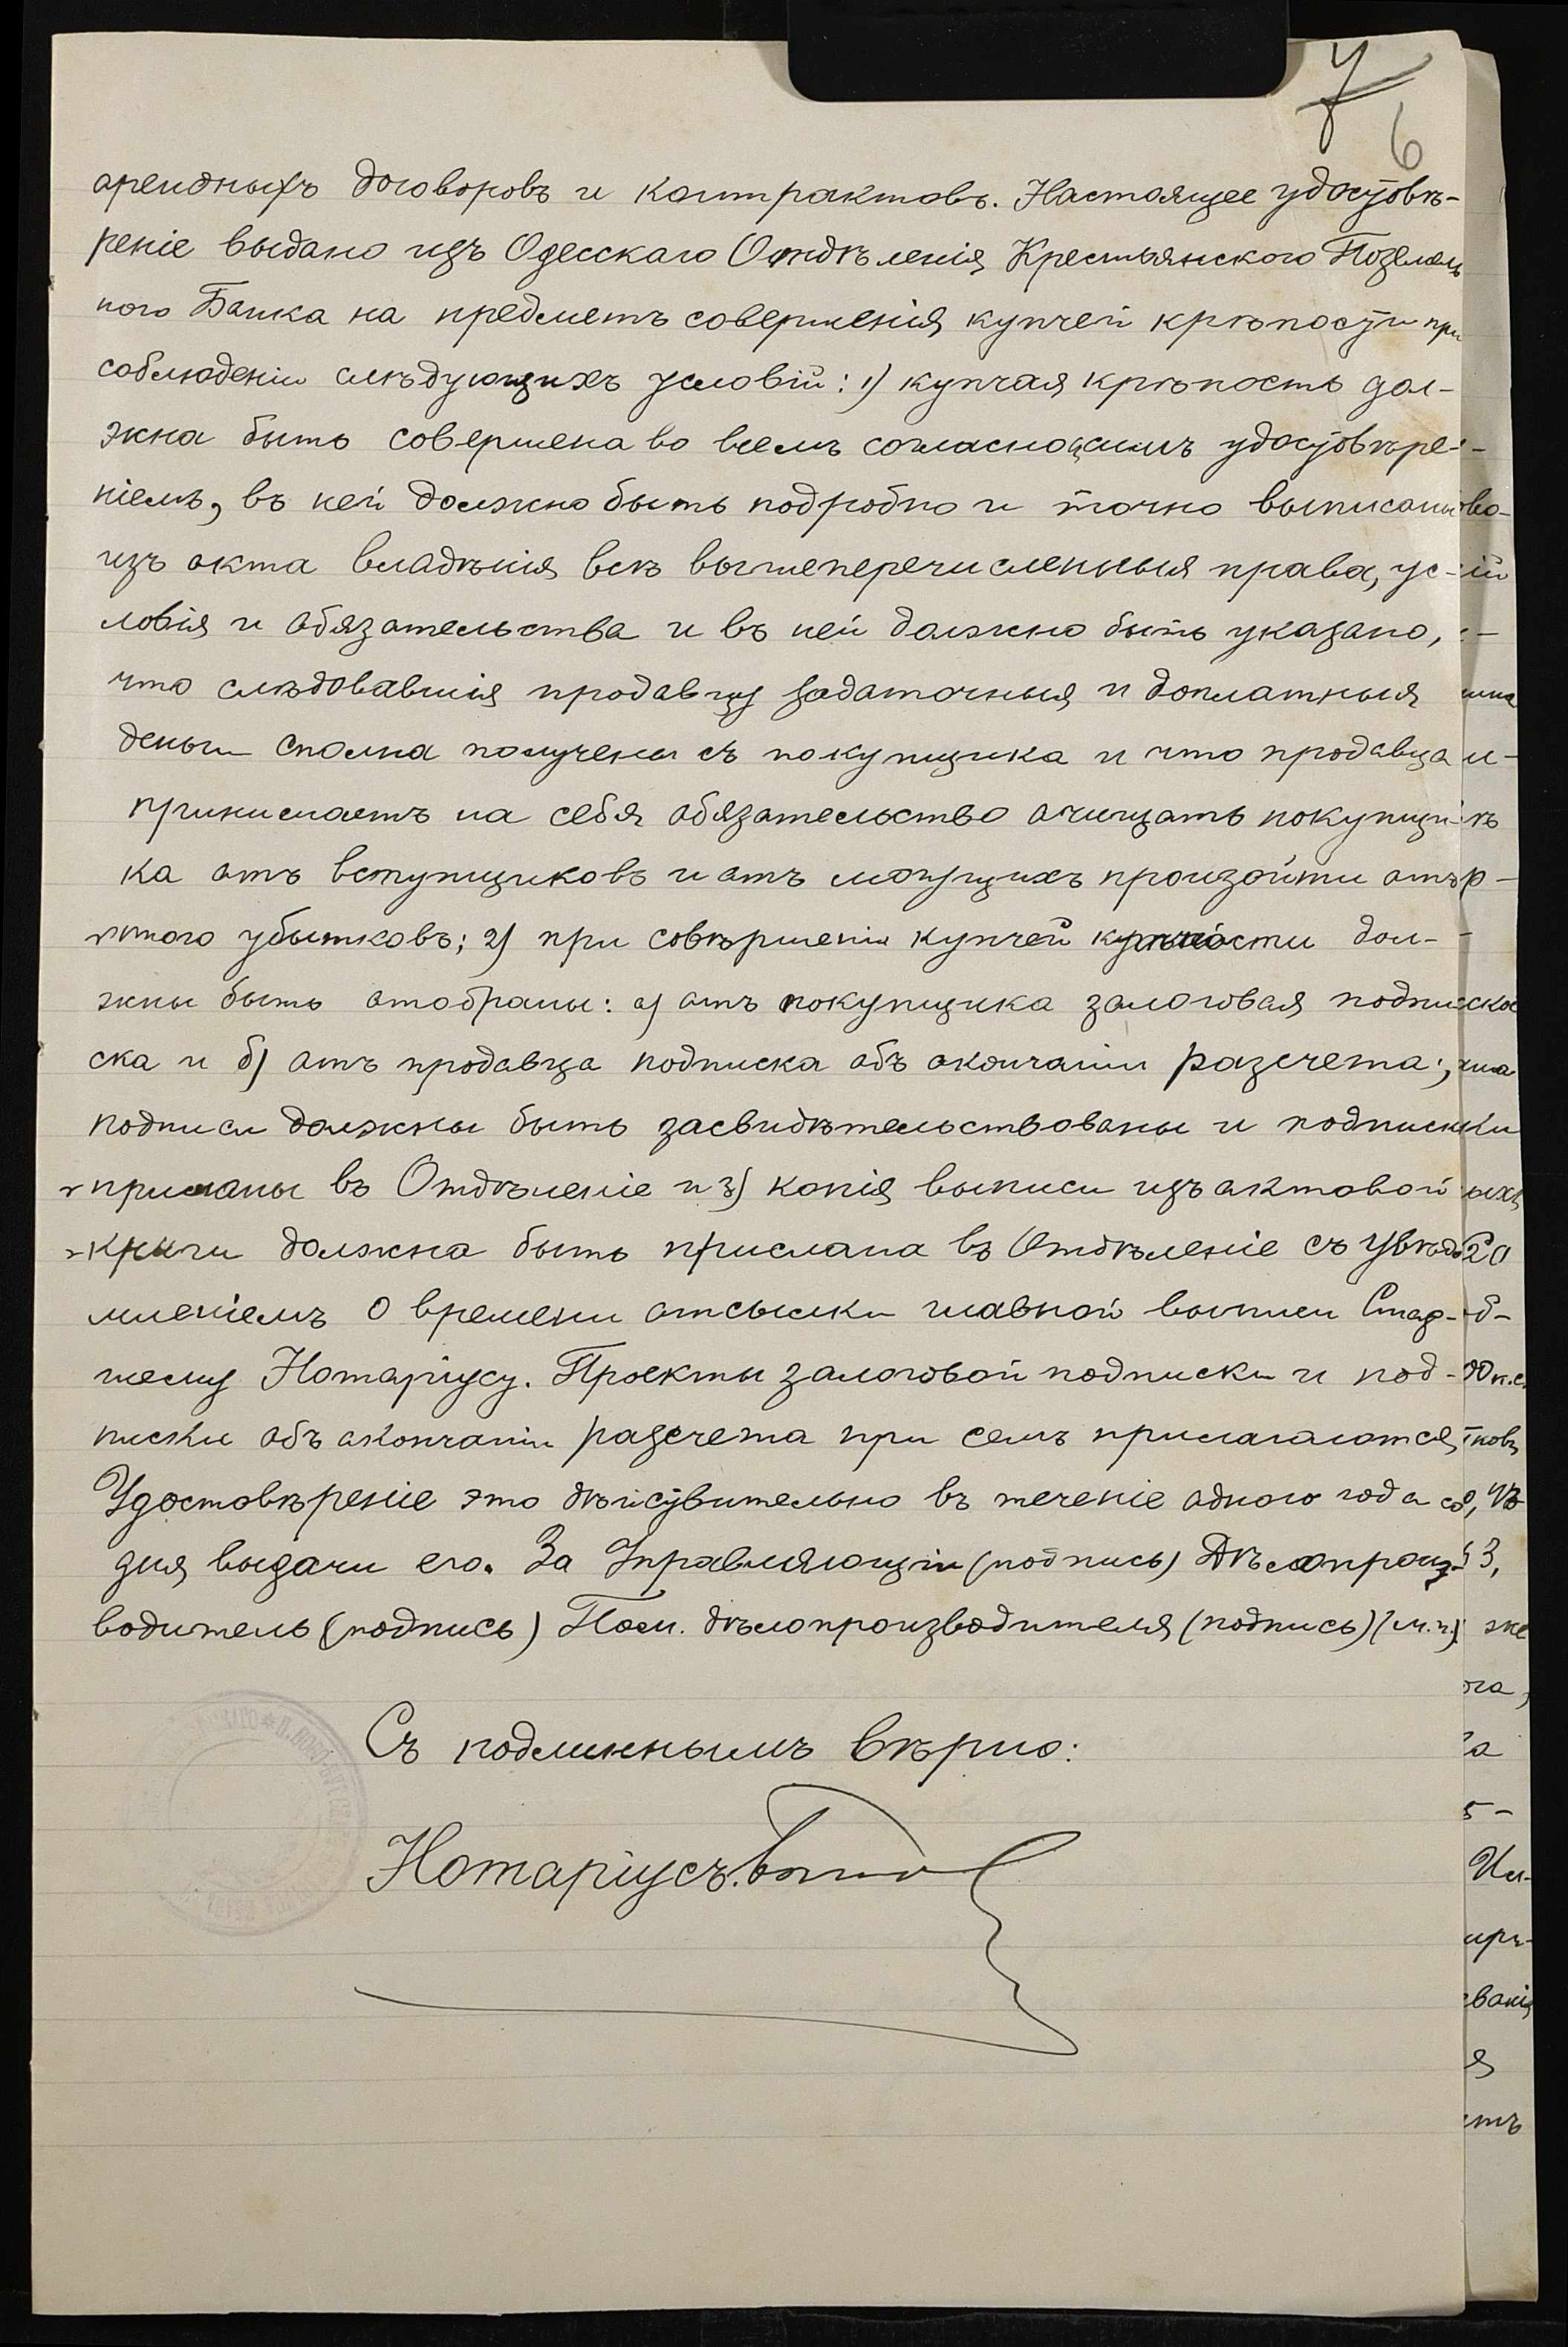 7
6
арендныхъ договоровъ и контрактовъ. Настоящее удостовѣ-
реніе выдано изъ Одесскаго Отдѣленія Крестьянского Поземель
ного Банка на предметъ совершенія купчей крѣпости при
соблюденіи слѣдующихъ условій: 1) купчая крѣпость дол-
жна быть совершена во всемъ согласно съ симъ удостовѣре-
ніемъ, въ ней должно быть подробно и точно выписаны
изъ акта владѣнія всѣ вышеперечисленныя права, ус-
ловія и обязательства и въ ней должно быть указано,
что слѣдовавшія продавцу задаточныя и доплатныя
деньги сполна получены съ покупщика и что продавца
принимаетъ на себя обязательство очищать покупщи-
ка отъ вступщиковъ и отъ могущихъ произойти отъ
этого убытковъ; 2) при совѣршеніи купчей крѣпости дол-
жны быть отобраны: а) отъ покупщика залоговая подпи-
ска и б) отъ продавца подписка объ окончаніи разсчета;
подписи должны быть засвидѣтельствованы и подписки
присланы въ Отдѣленіе и 3) копія выписи изъ актовой
книги должна быть прислана въ Отдѣленіе съ увѣдо
мленіемъ о времени отсылки главной выписи Стар-
шему Нотаріусу. Проекты залоговой подписки и под-
писки объ окончаніи разсчета при семъ прилагаются
Удостовѣреніе это дѣйствительно въ теченіе одного года со
дня выдачи его. За Управляющій (подпись) Дѣлопроиз-
водитель (подпись) Пом. дѣлопроизводителя (подпись) (м.п.)
Съ подлиннымъ вѣрно:
Нотаріусъ